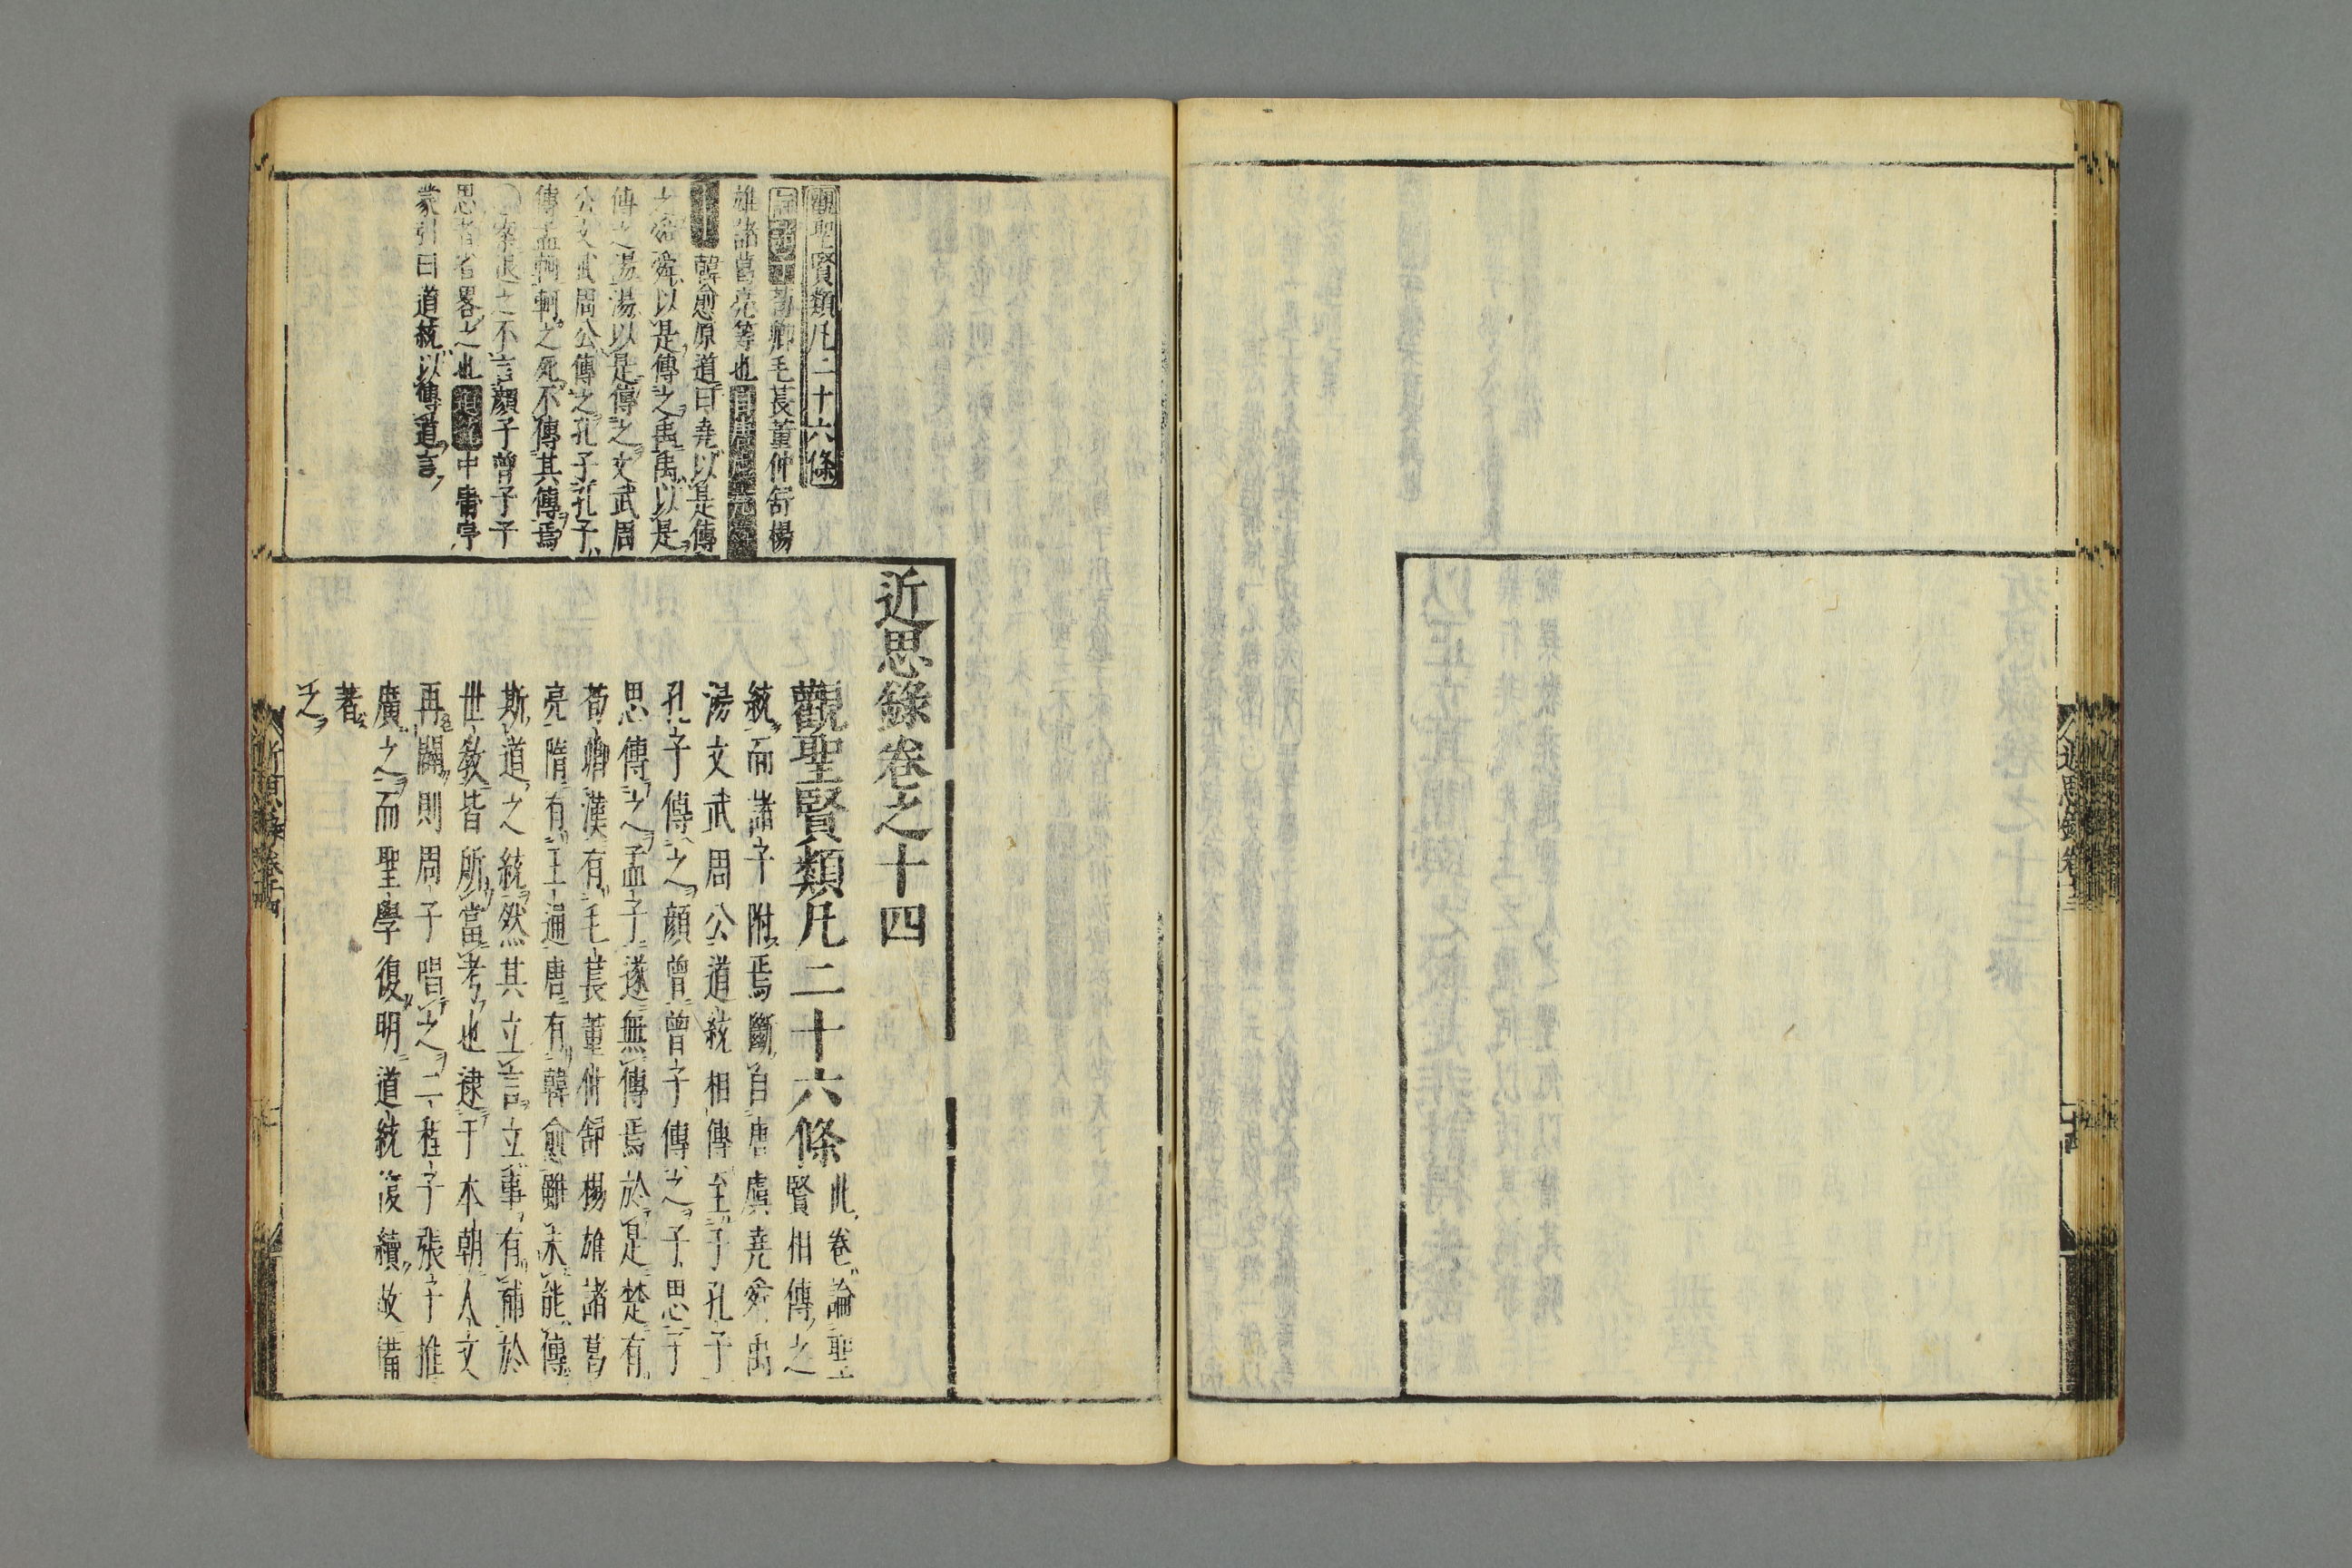 近思錄卷十三
近思錄卷之十四
觀聖賢類凡二十六條
此卷論聖
賢相傳之
統而諸子附焉斷自唐虞堯舜禹
湯文武周公道統相傳至于孔子
孔子傳之顏曾曾子傳之子思子
思傳之孟子遂無傳焉於是楚有
荀卿漢有毛萇董仲舒楊雄諸葛
亮隋有王通唐有韓愈雖未能傳
斯道之統然其立言立事有補於
世教皆所當考也逮于本朝人文
再闢則周子唱之二程子張子推
廣之而聖學復明道統復續故備
著
之
觀聖賢類凡二十六條
荀卿毛萇董仲舒楊
雄諸葛亮等也
韓愈原道曰堯以是傳
之舜舜以是傳之禹禹以是
傳之湯湯以是傳之文武周
公文武周公傳之孔子孔子
傳孟軻軻之死不傳其傳焉
案退之不言顏子曾子子
思者省畧之也道統中庸序
蒙引曰道統以傳道言
近思錄卷十四